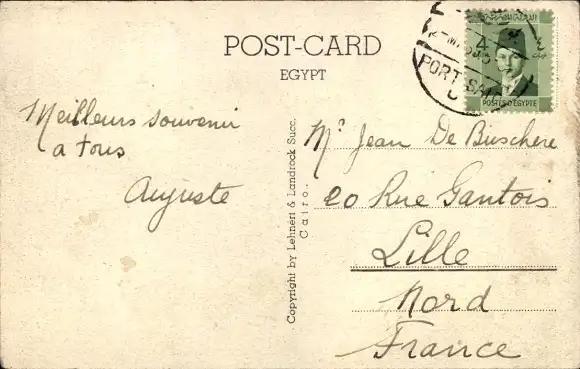 POST-CARD
EGYPT
Meilleurs souvenir
a tous
Auguste
Copyright by Lehnert & Landrock Succ.
Cairo.
PORT-SAID
4
POSTES D'EGYPTE
Mr Jean De Buschere
20 Rue Gantois
Lille
Nord
France